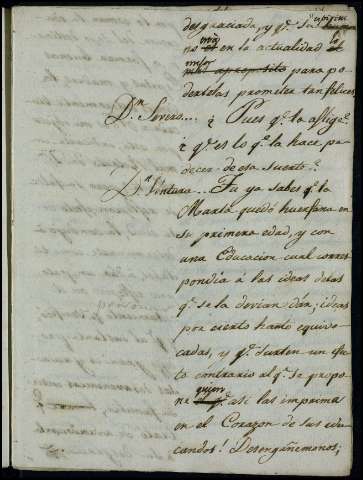 desgraciada, y q.e su
no está en la actualidad
para po
dertelas prometer tan felices
D.n Severo.... ¿ Pues q.e la aflige?
¿ q.e es lo q.e la hace pa
decer de esa suerte?
D.n Ventura... Tu ya sabes q.e la
Marta quedó huerfana en
su primera edad, y con
una Educacion cual corres
pondia á las ideas de las
q.e se la devian dár; ideas
por cierto harto equivo
cadas, y q.e surten un efe
cto contrario al q.e se propo
ne quien así las imprime
en el Corazon de sus edu
candos! Desengañemonos;